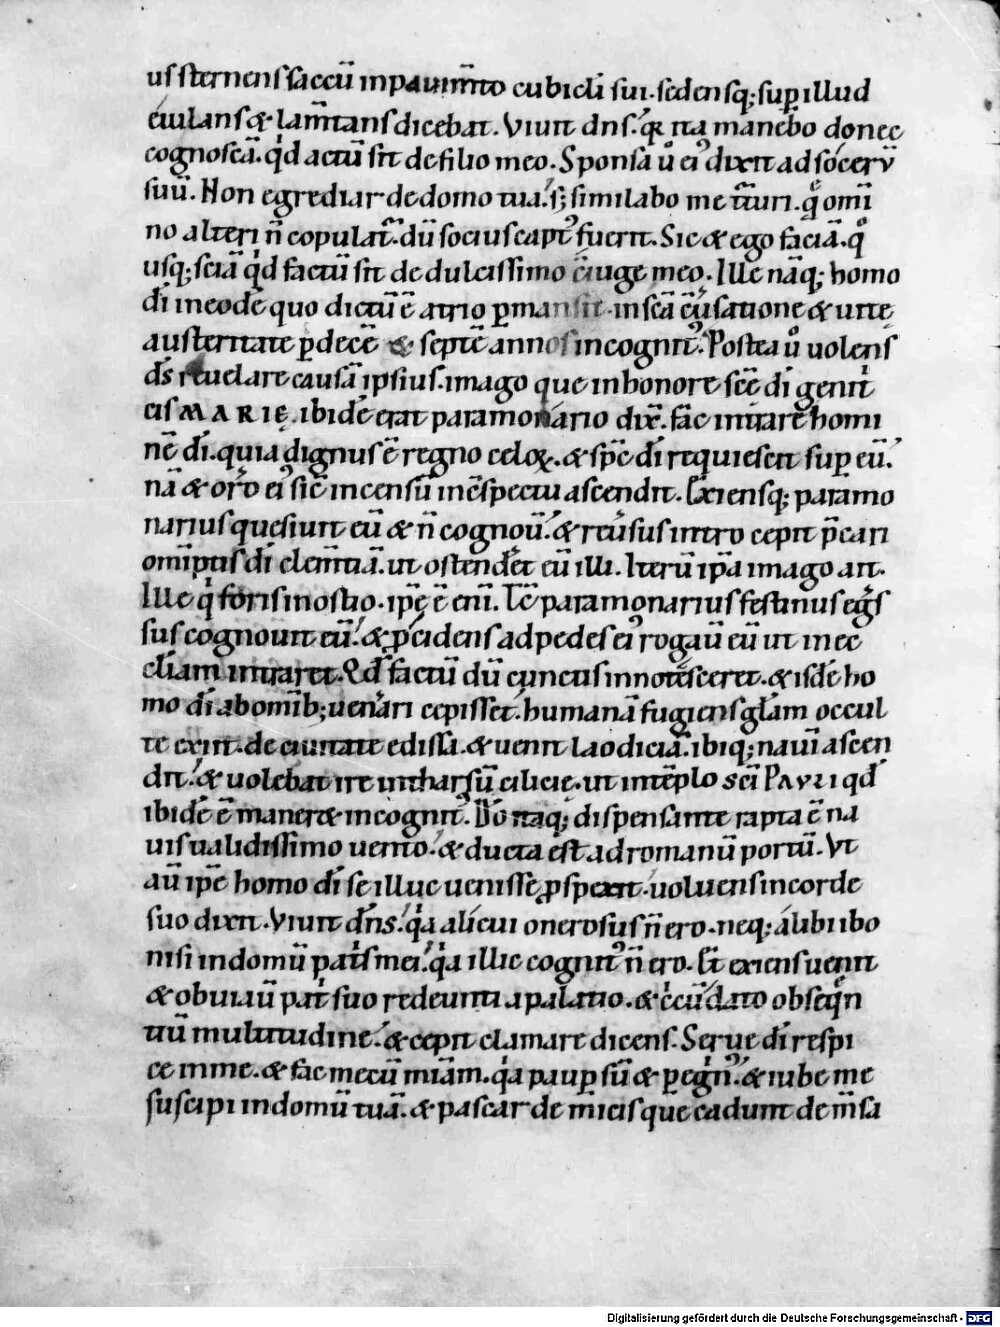 us sternens saccū in pauim̄to cubiculi sui. sedensq; sup illud
eiulans & lam̄tans dicebat. Viuit dn̄s. qr ita manebo donec
cognoscā. qd actū sit de filio meo. Sponsa ů ei' dixit ad socerū
suū. Non egrediar de domo tua. s; similabo me t̄turi. q̊ omi
no alteri n̄ copulat̄. dū socius capt' fuerit. Sic & ego faciā. q̊
usq; sciā qd factū sit de dulcissimo c̄iuge meo. Ille nāq; homo
dī in eodē quo dictū ē atrio p̄mansit in sc̄a c̄uersatione & uite
austeritate p decē & septē annos incognit'. Postea ů uolens
d̄s reuelare causā ipsius. imago que in honore sc̄e dī genit
cis MARIĘ. ibidē erat paramonario dix̄. fac intrare homi
nē dī. quia dignus ē regno celoꝝ. & sp̄c dī requiescit sup eū.
nā & or̄o ei' sic̄ incensū in c̄spectu ascendit. Exiensq; paramo
narius quesiuit eū & n̄ cognoū. & reūsus intro cepit p̄cari
om̄iptis dī clem̄tiā. ut ostenderet eū illi. Iterū ip̄a imago ait.
Ille q̇ foris in ostio. ip̄e ē enī. Tc̄ paramonarius festinus egs
sus cognouit eū. & p̄cidens ad pedes ei' rogaū eū ut in ec
cl̄iam intraret. Qd̄ factū dū cunctis innotesceret. & isdē ho
mo dī ab omīb; uen̄ari cepisset. humanā fugiens gl̄am occul
te exiit de ciuitate edissa. & uenit laodiciā. ibiq; nauī ascen
dit. & uolebat ire in tharsū cilicie. ut in tēplo sc̄i PAULI qd̄
ibidē ē maneret incognit'. Dō naq; dispensante rapta ē na
uis ualidissimo uento. & ducta est ad romanū portū. Vt
aū ip̄e homo dī se illuc uenisse p̱spexit. uoluens in corde
suo dixit. Viuit dn̄s. qa alicui onerosus n̄ ero. neq; alibi ibo
nisi in domū patis mei. qa illic cognit' n̄ ero. Et exiens uenit
& obuiaū pat̄ suo redeunti a palatio. & c̄cūdato obseqn
tiū multitudine. & cepit clamare dicens. Serue dī respi
ce in me. & fac mecū mīam. qa paup sū & pegn'. & iube me
suscipi in domū tuā. & pascar de micis que cadunt de m̄sa
Digitalisierung gefördert durch die Deutsche Forschungsgemeinschaft - DFG